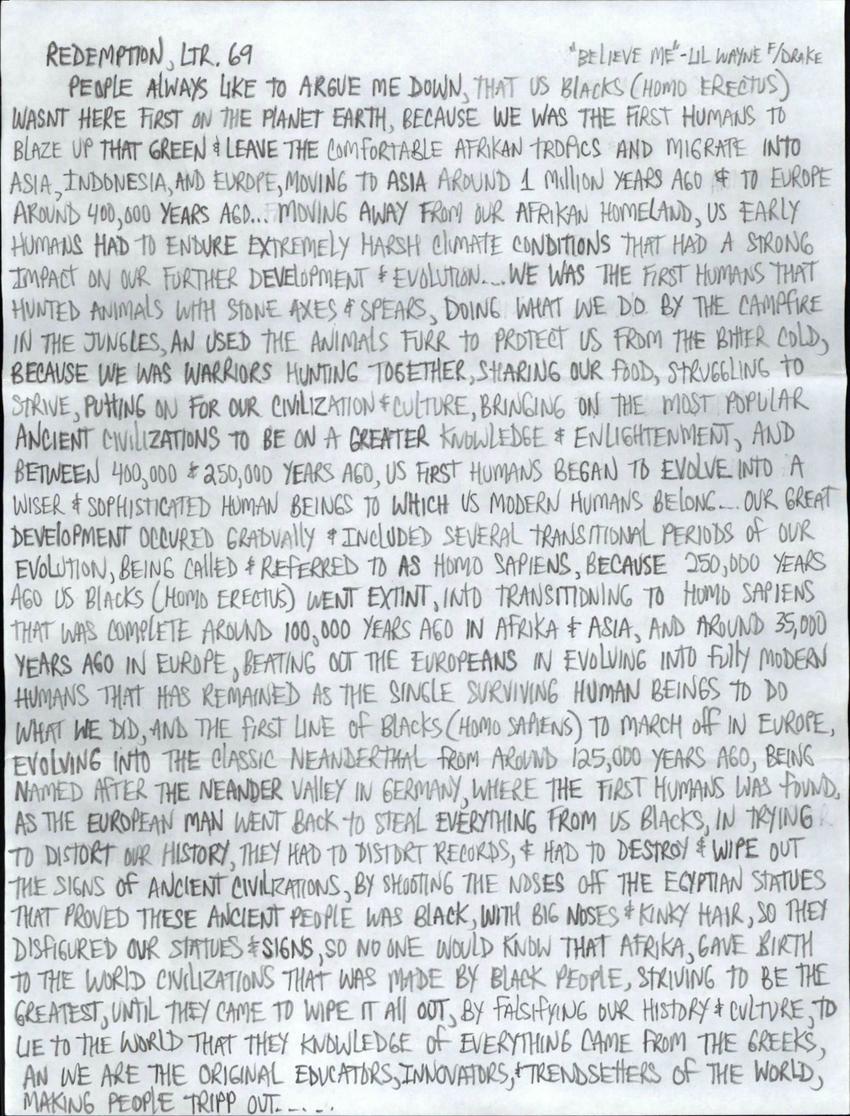 REDEMPTION, LTR. 69 "BELIEVE ME"-LIL WAYNE F/DRAKE
PEOPLE ALWAYS LIKE TO ARGUE ME DOWN, THAT US BLACKS (HOMO ERECTUS)
WASNT HERE FIRST ON THE PLANET EARTH, BECAUSE WE WAS THE FIRST HUMANS TO
BLAZE UP THAT GREEN & LEAVE THE COMFORTABLE AFRIKAN TROPICS AND MIGRATE INTO
ASIA, INDONESIA, AND EUROPE, MOVING TO ASIA AROUND 1 MILLION YEARS AGO & TO EUROPE
AROUND 400,000 YEARS AGO... MOVING AWAY FROM OUR AFRIKAN HOMELAND, US EARLY
HUMANS HAD TO ENDURE EXTREMELY HARSH CLIMATE CONDITIONS THAT HAD A STRONG
IMPACT ON OUR FURTHER DEVELOPMENT & EVOLUTION.... WE WAS THE FIRST HUMANS THAT
HUNTED ANIMALS WITH STONE AXES & SPEARS, DOING WHAT WE DO BY THE CAMPFIRE
IN THE JUNGLES, AN USED THE ANIMALS FURR TO PROTECT US FROM THE BITTER COLD,
BECAUSE WE WAS WARRIORS HUNTING TOGETHER, SHARING OUR FOOD, STRUGGLING TO
STRIVE, PUTTING ON FOR OUR CIVILIZATION & CULTURE, BRINGING ON THE MOST POPULAR
ANCIENT CIVILIZATIONS TO BE ON A GREATER KNOWLEDGE & ENLIGHTENMENT, AND
BETWEEN 400,000 & 250,000 YEARS AGO, US FIRST HUMANS BEGAN TO EVOLVE INTO A
WISER & SOPHISTICATED HUMAN BEINGS TO WHICH US MODERN HUMANS BELONG.... OUR GREAT
DEVELOPMENT OCCURED GRADUALLY & INCLUDED SEVERAL TRANSITIONAL PERIODS OF OUR
EVOLUTION, BEING CALLED & REFERRED TO AS HOMO SAPIENS, BECAUSE 250,000 YEARS
AGO US BLACKS (HOMO ERECTUS) WENT EXTINT, INTO TRANSITIONING TO HOMO SAPIENS
THAT WAS COMPLETE AROUND 100,000 YEARS AGO IN AFRIKA & ASIA, AND AROUND 35,000
YEARS AGO IN EUROPE, BEATING OUT THE EUROPEANS IN EVOLVING INTO FULLY MODERN
HUMANS THAT HAS REMAINED AS THE SINGLE SURVIVING HUMAN BEINGS TO DO
WHAT WE DID, AND THE FIRST LINE OF BLACKS (HOMO SAPIENS) TO MARCH OFF IN EUROPE,
EVOLVING INTO THE CLASSIC NEANDERTHAL FROM AROUND 125,000 YEARS AGO, BEING
NAMED AFTER THE NEANDER VALLEY IN GERMANY, WHERE THE FIRST HUMANS WAS FOUND,
AS THE EUROPEAN MAN WENT BACK TO STEAL EVERYTHING FROM US BLACKS, IN TRYING
TO DISTORT OUR HISTORY, THEY HAD TO DISTORT RECORDS, & HAD TO DESTROY & WIPE OUT
THE SIGNS OF ANCIENT CIVILIZATIONS, BY SHOOTING THE NOSES OFF THE EGYPTIAN STATUES
THAT PROVED THESE ANCIENT PEOPLE WAS BLACK, WITH BIG NOSES & KINKY HAIR, SO THEY
DISFIGURED OUR STATUES & SIGNS, SO NO ONE WOULD KNOW THAT AFRIKA, GAVE BIRTH
TO THE WORLD CIVILIZATIONS THAT WAS MADE BY BLACK PEOPLE, STRIVING TO BE THE
GREATEST, UNTIL THEY CAME TO WIPE IT ALL OUT, BY FALSIFYING OUR HISTORY & CULTURE, TO
LIE TO THE WORLD THAT THEY KNOWLEDGE OF EVERYTHING CAME FROM THE GREEKS,
AN WE ARE THE ORIGINAL EDUCATORS, INNOVATORS, & TRENDSETTERS OF THE WORLD,
MAKING PEOPLE TRIPP OUT.....